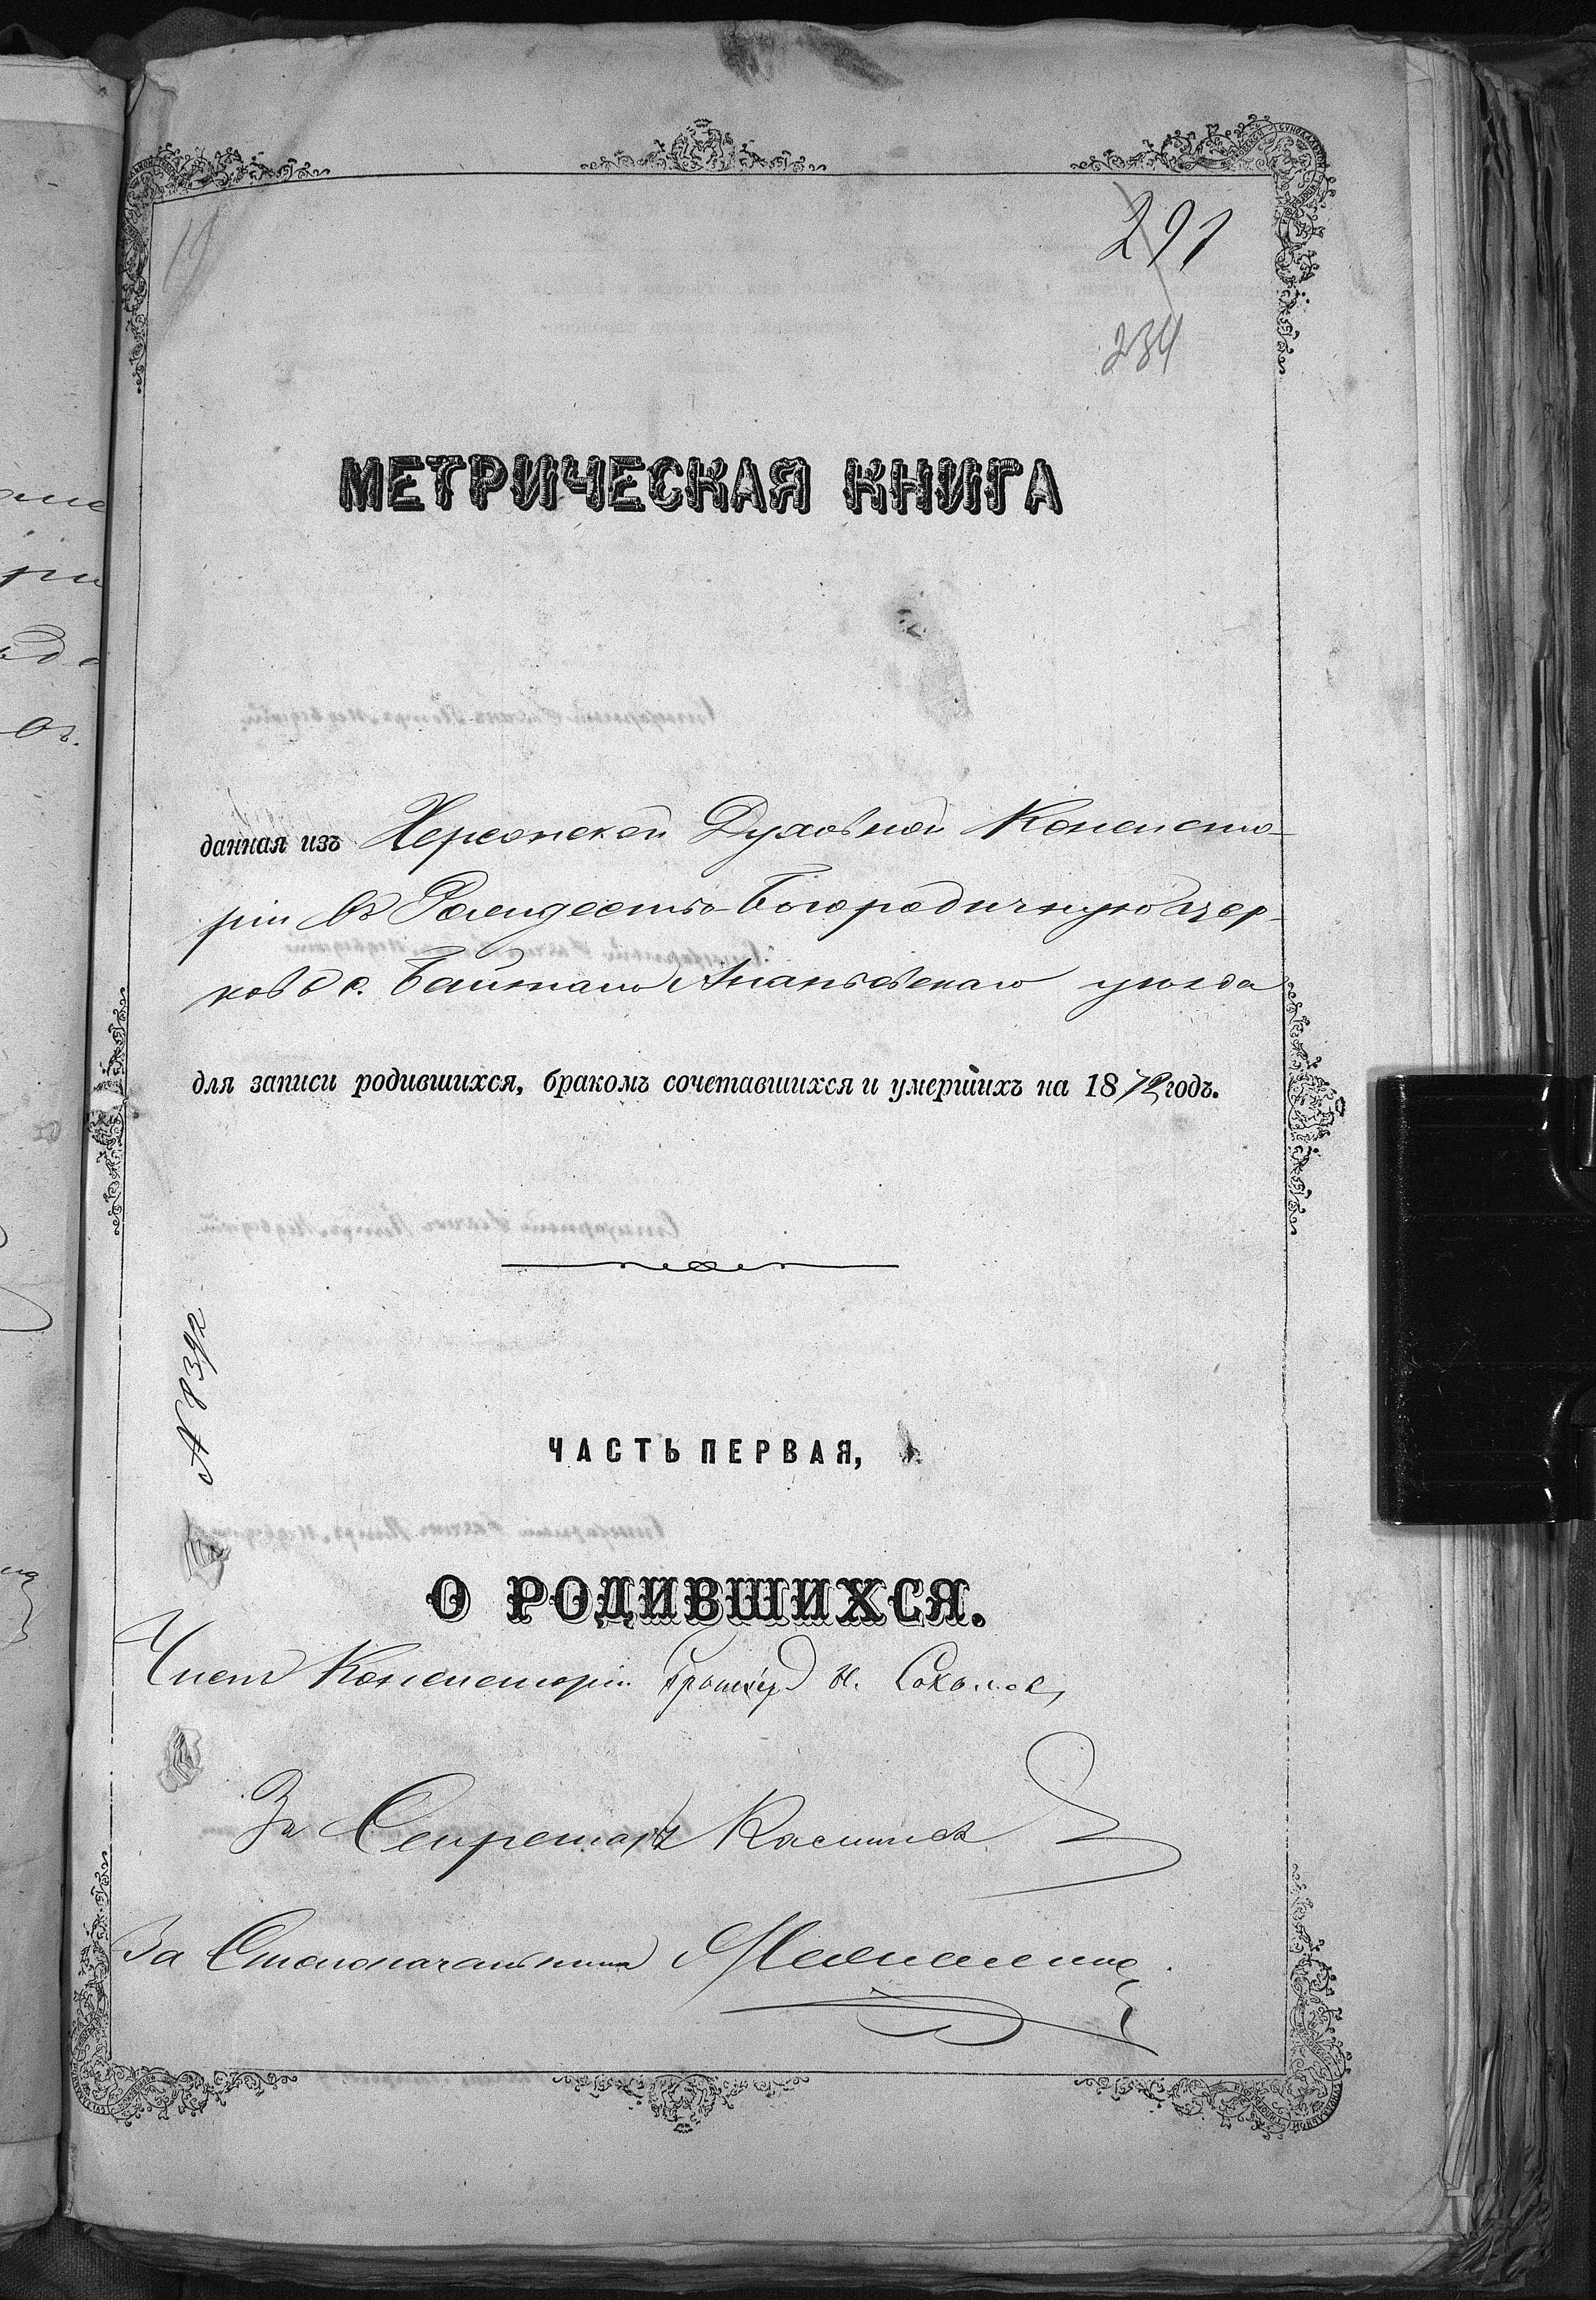 291
234
МЕТРИЧЕСКАЯ КНИГА
данная изъ Херсонской Духовной Консисто-
ріи въ Рождество-Богородичную цер-
ковь с. Байталъ Ананьевскаго уѣзда
для записи родившихся, бракомъ сочетавшихся и умершихъ на 1872 годъ.
№ 8392
ЧАСТЬ ПЕРВАЯ,
О РОДИВШИХСЯ.
Членъ Консисторіи Н. Соколов
За Секретаря
За Столоначальника